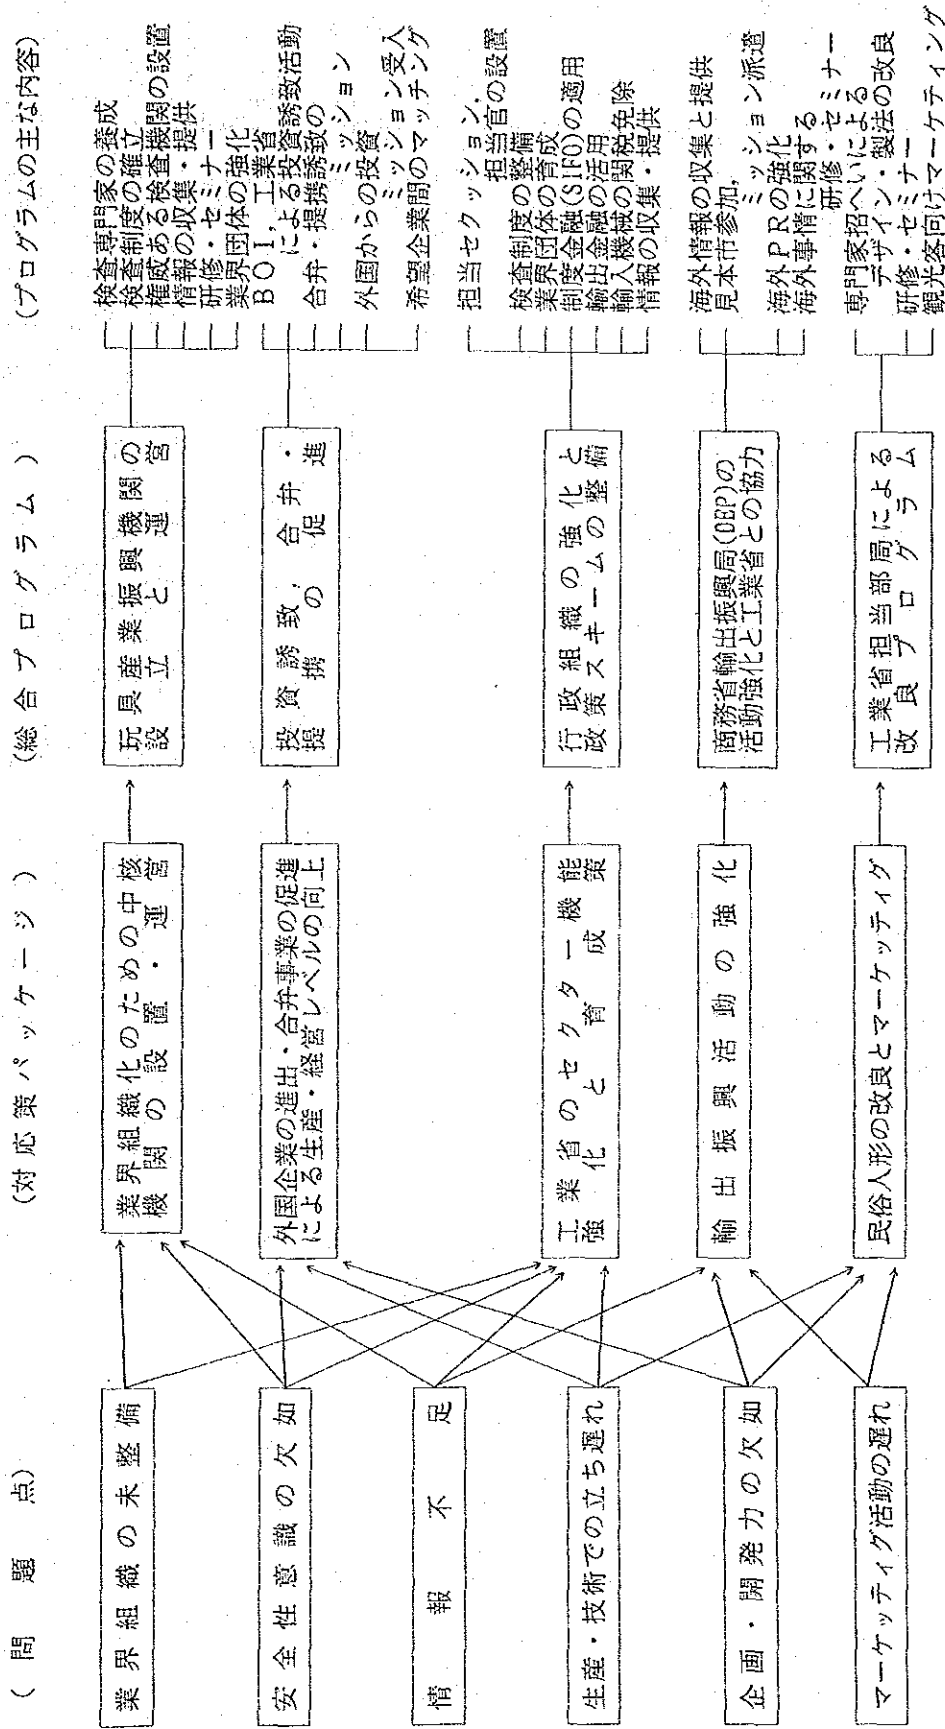 ( 問 題 点 )
業界組織の未整備
安全性意識の欠如
情報不足
生産・技術での立ち遅れ
企画・開発力の欠如
マーケッティグ活動の遅れ
(対応策パッケージ)
業界組織化のための中核
機関の設置・運営
外国企業の進出・合弁事業の促進
による生産・経営レベルの向上
工業省のセクター機能
強化と育成策
輸出振興活動の強化
民俗人形の改良とマーケッティグ
(総合プログラム)
玩具産業振興機関の
設立と運営
投資誘致,合弁・
提携の促進
行政組織の強化と
政策スキームの整備
商務省輸出振興局(DEP)の
活動強化と工業省との協力
工業省担当部局による
改良プログラム
(プログラムの主な内容)
検査専門家の養成
検査制度の確立
権威ある検査機関の設置
情報の収集・提供
研修・セミナー
業界団体の強化
BOI,工業省
による投資誘致活動
合弁・提携誘致の
ミッション
外国からの投資
ミッション受入
希望企業間のマッチング
担当セクッション,
担当官の設置
検査制度の整備
業界団体の育成
制度金融(SIFO)の適用
輸出金融の活用
輸入機械の関税免除
情報の収集・提供
海外情報の収集と提供
見本市参加,
ミッション派遣
海外PRの強化
海外事情に関する
研修・セミナー
専門家招へいによる
デザイン・製法の改良
研修・セミナー
観光客向けマーケティング